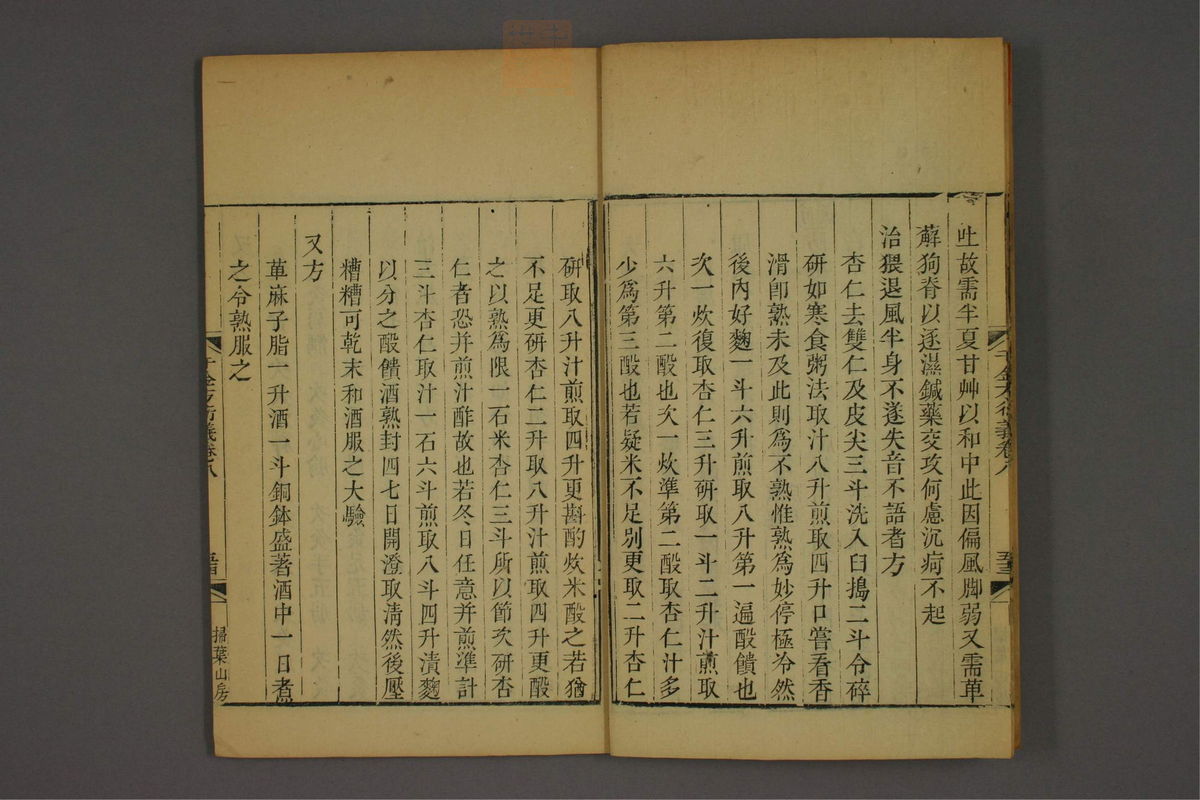 吐故需半夏甘艸以和中此因偏風脚弱又需萆
薢狗脊以逐濕鍼藥交攻何慮沉疴不起
治猥退風半身不遂失音不語者方
杏仁去雙仁及皮尖三斗洗入臼搗二斗令碎
研如寒食粥法取汁八升煎取四升口嘗看香
滑卽熟未及此則爲不熟惟熟爲妙停極冷然
後內好麴一斗六升煎取八升第一遍酘饙也
次一炊復取杏仁三升研取一斗二升汁煎取
六升第二酘也次一炊準第二酘取杏仁汁多
少爲第三酘也若疑米不足別更取二升杏仁
研取八升汁煎取四升更斟酌炊米酘之若猶
不足更研杏仁二升取八升汁煎取四升更酘
之以熟爲限一石米杏仁三斗所以節次研杏
仁者恐并煎汁酢故也若冬日任意并煎準計
三斗杏仁取汁一石六斗煎取八斗四升漬麴
以分之酘饙酒熟封四七日開澄取淸然後壓
糟糟可乾末和酒服之大驗
又方
萆麻子脂一升酒一斗銅鉢盛著酒中一日煮
之令熟服之
千金方衍義卷八
掃葉山房